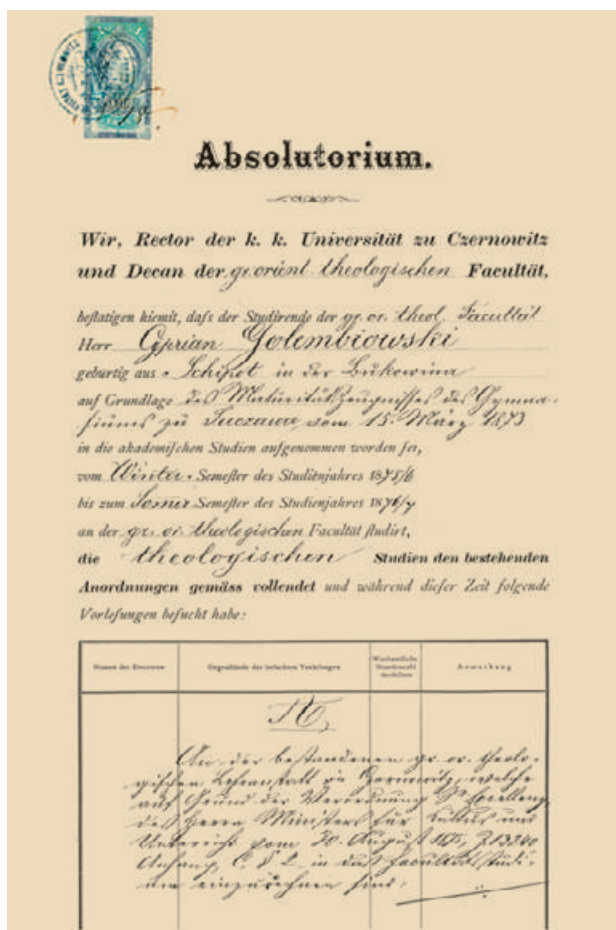 Absolutorium.
Wir, Rector der k. k. Universität zu Czernowitz
und Decan der gr. orient. theologischen Facultät,
bestätigen hiemit, dass der Studirende der gr. or. theol. Facultät
Herr Cyprian Golembiowski
gebürtig aus Schipot in der Bukowina
auf Grundlage des Maturitätszeugnisses des Gymna-
siums zu Suczawa vom 15. März 1873
in die akademischen Studien aufgenommen worden sei,
vom Winter-Semester des Studienjahres 1875/6
bis zum Semester des Studienjahres 1876/7
an der gr. or. theologischen Facultät studirt,
die theologischen Studien den bestehenden
Anordnungen gemäss vollendet und während dieser Zeit folgende
Vorlesungen besucht habe:
Namen der Docenten
Gegenstände der Vorlesungen
Wochentliche Stundenzahl derselben
Anmerkung
An der bestandenen gr. or. theolo-
gischen Lehranstalt in Czernowitz, welche
auf Grund der Verordnung Sr Excellenz
des Herrn Ministers für Cultus und
Unterricht vom 30. August Z. 13240
Anhang C, § 2 in das Facultätsstudi-
um einzurechnen sind.